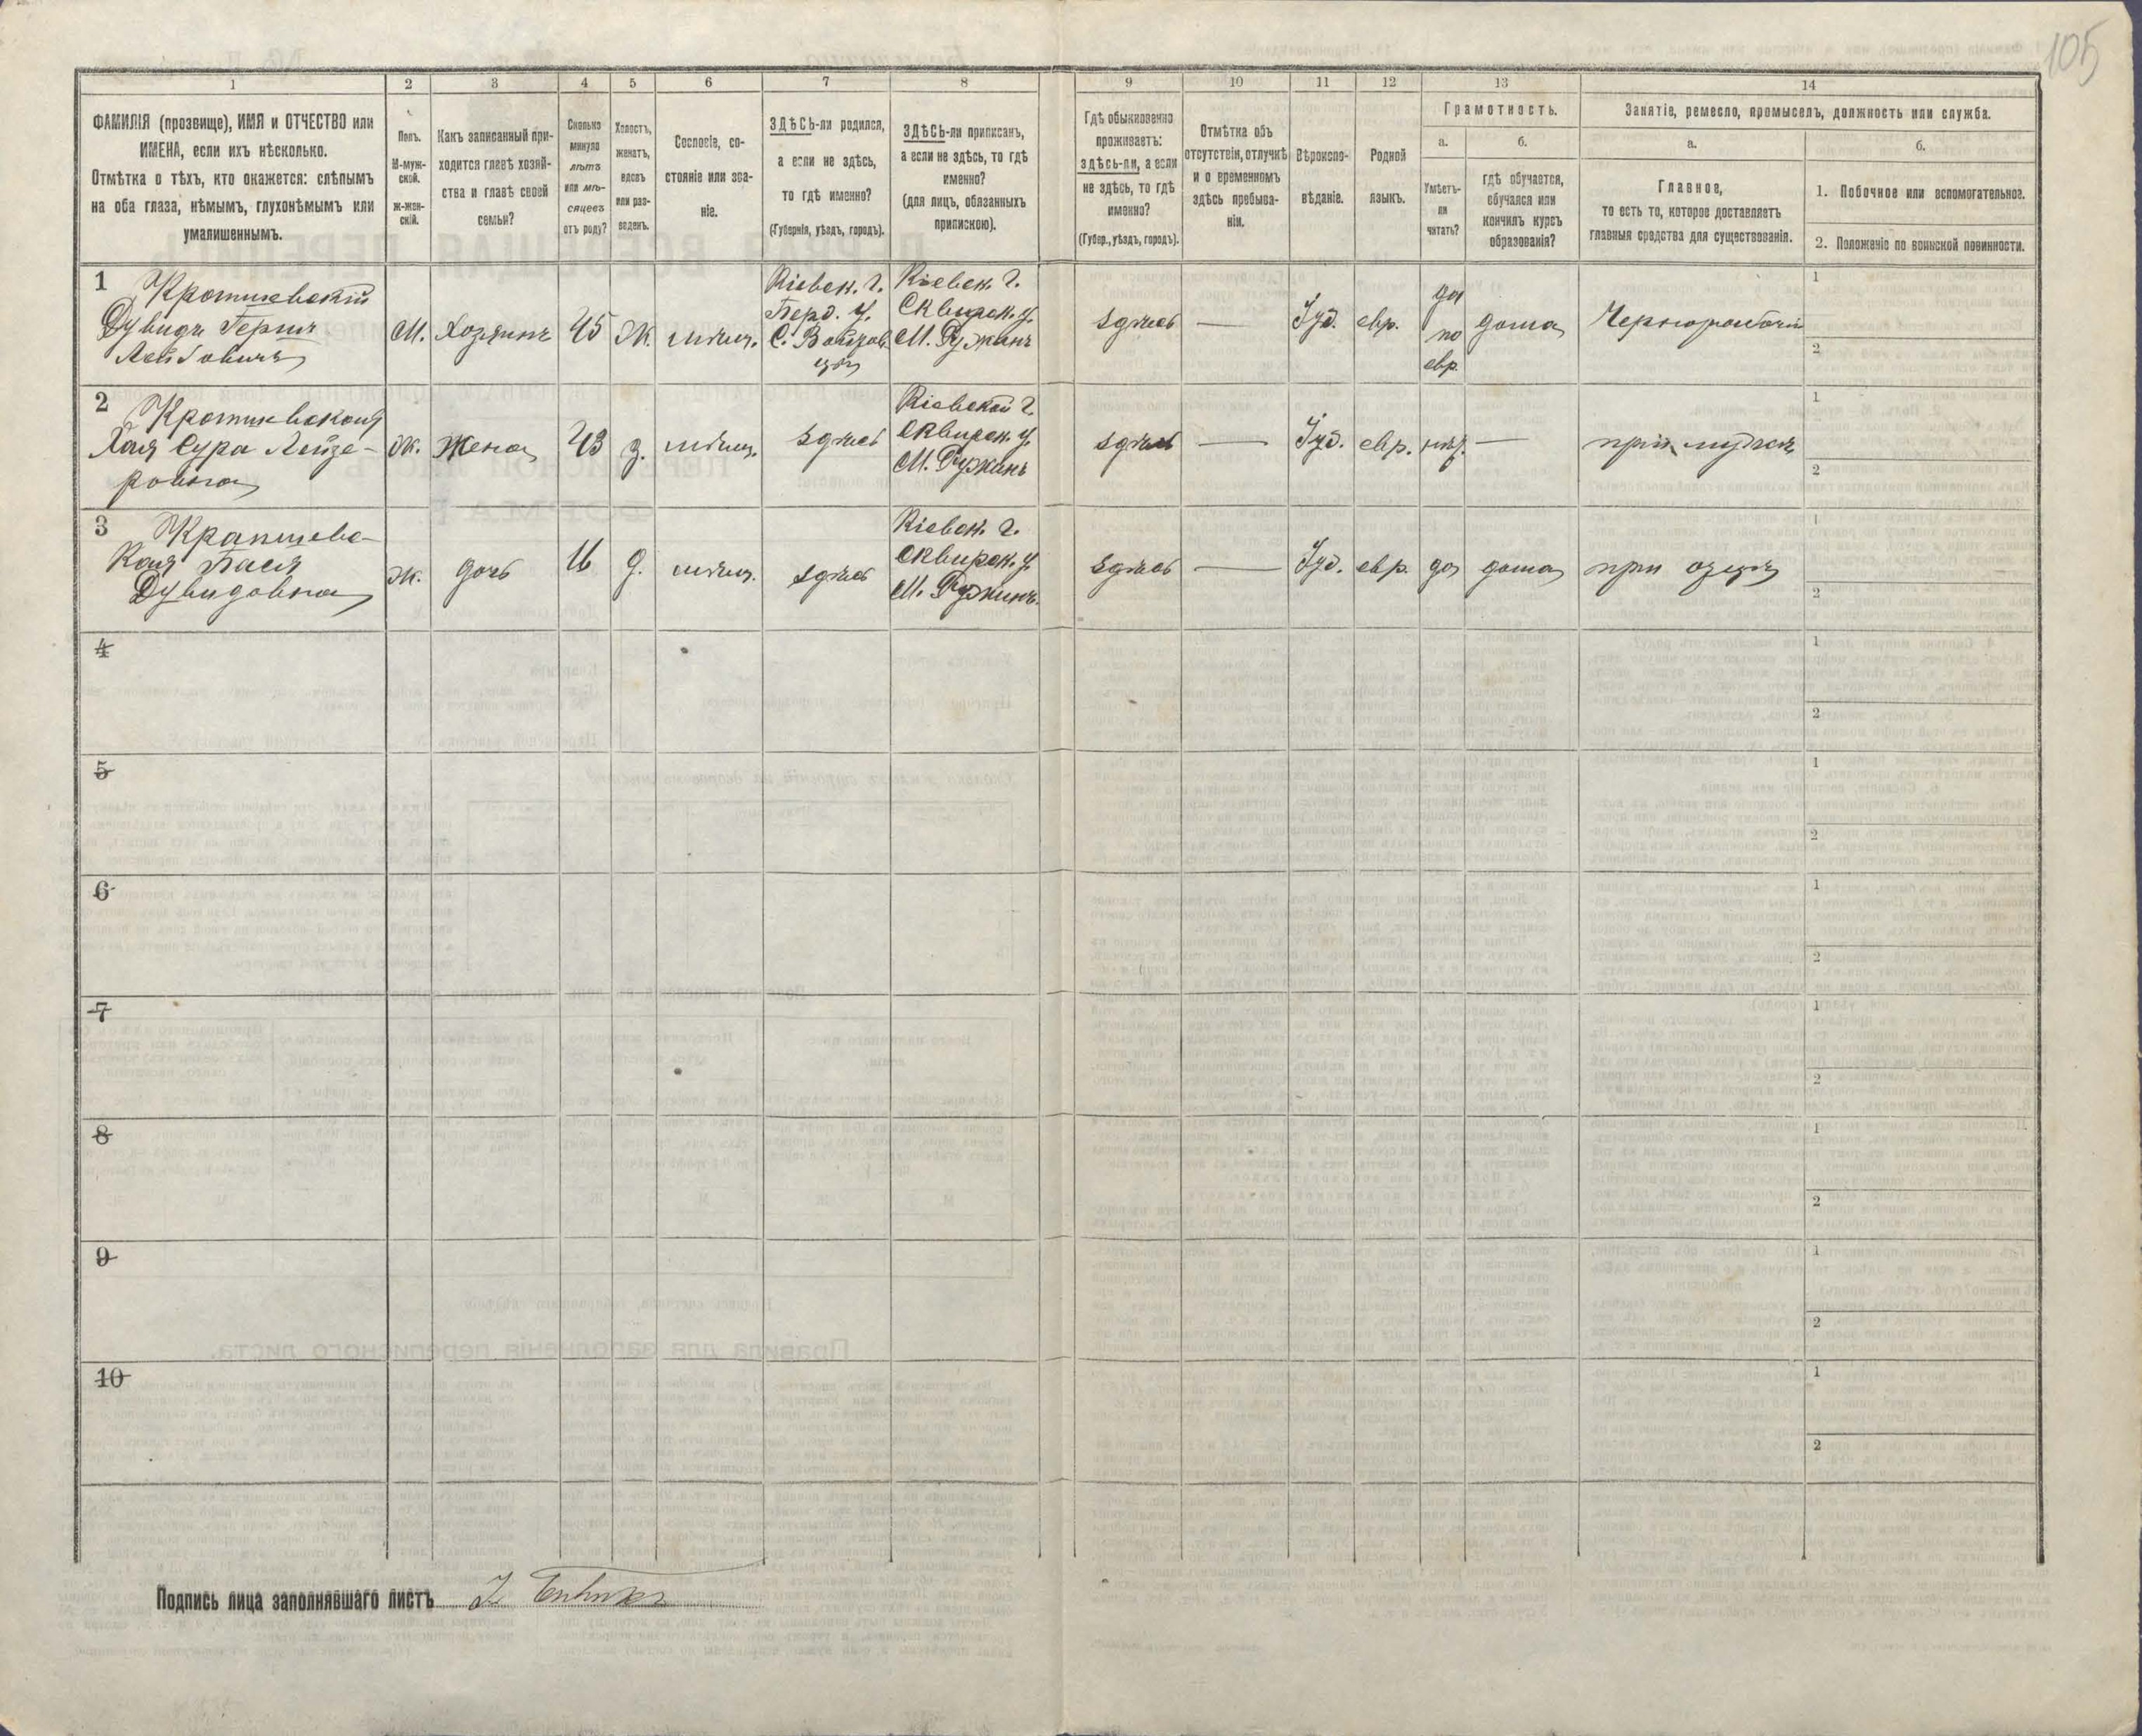 105
1
2
3
4
5
6
7
8
9
10
11
12
13
14
ФАМИЛІЯ (прозвище), ИМЯ и ОТЧЕСТВО или
ИМЕНА, если ихъ нѣсколько.
Отмѣтка о тѣхъ, кто окажется: слѣпымъ
на оба глаза, нѣмымъ, глухонѣмымъ или
умалишеннымъ.
Полъ.
М-муж-
ской.
Ж-жен-
скій.
Какъ записанный при-
ходится главѣ хозяй-
ства и главѣ своей
семьи?
Сколько
минуло
лѣтъ
или мѣ-
сяцевъ
отъ роду?
Холостъ,
женатъ,
вдовъ
или раз-
веденъ.
Сословіе, со-
стояніе или зва-
ніе.
ЗДѢСЬ-ли родился,
а если не здѣсь,
то гдѣ именно?
(Губернія, уѣздъ, городъ).
ЗДѢСЬ-ли приписанъ,
а если не здѣсь, то гдѣ
именно?
(для лицъ, обязанныхъ
припискою).
Гдѣ обыкновенно
проживаетъ:
здѣсь-ли, а если
не здѣсь, то гдѣ
именно?
(Губер., уѣздъ, городъ).
Отмѣтка объ
отсутствіи, отлучкѣ
и о временномъ
здѣсь пребыва-
ніи.
Вѣроиспо-
вѣданіе.
Родной
языкъ.
Грамотность.
а.
Умѣетъ-
ли
читать?
б.
гдѣ обучается,
обучался или
кончилъ курсъ
образованія?
Занятіе, ремесло, промыселъ, должность или служба.
а.
Главное,
то есть то, которое доставляетъ
главныя средства для существованія.
б.
1. Побочное или вспомогательное.
2. Положеніе по воинской повинности.
1
Дувидъ Герш
М.
Хозяинъ
45
Ж.
мѣщ.
Кіевск. г.
Берд. у.
Кіевск. г.
Сквирск. у.
М. Ружинъ
здѣсь
—
Іуд.
евр.
да
по
евр.
дома
Чернорабочій
1
2
2
Хая Сура Лейзе-
ровна
Ж.
Жена
43
з.
мѣщ.
здѣсь
Кіевской г.
Сквирск. у.
М. Ружинъ
здѣсь
—
Іуд.
евр.
—
при мужѣ
1
2
3
Крапивевс-
кая Бася
Дувидовна
ж.
дочь
16
д.
мѣщ.
здѣсь
Кіевск. г.
Сквирск. у.
М. Ружинъ.
здѣсь
—
Іуд.
евр.
да
дома
при отцѣ
1
2
4
1
2
5
1
2
6
1
2
7
1
2
8
1
2
9
1
2
10
1
2
Подпись лица заполнявшаго листъ